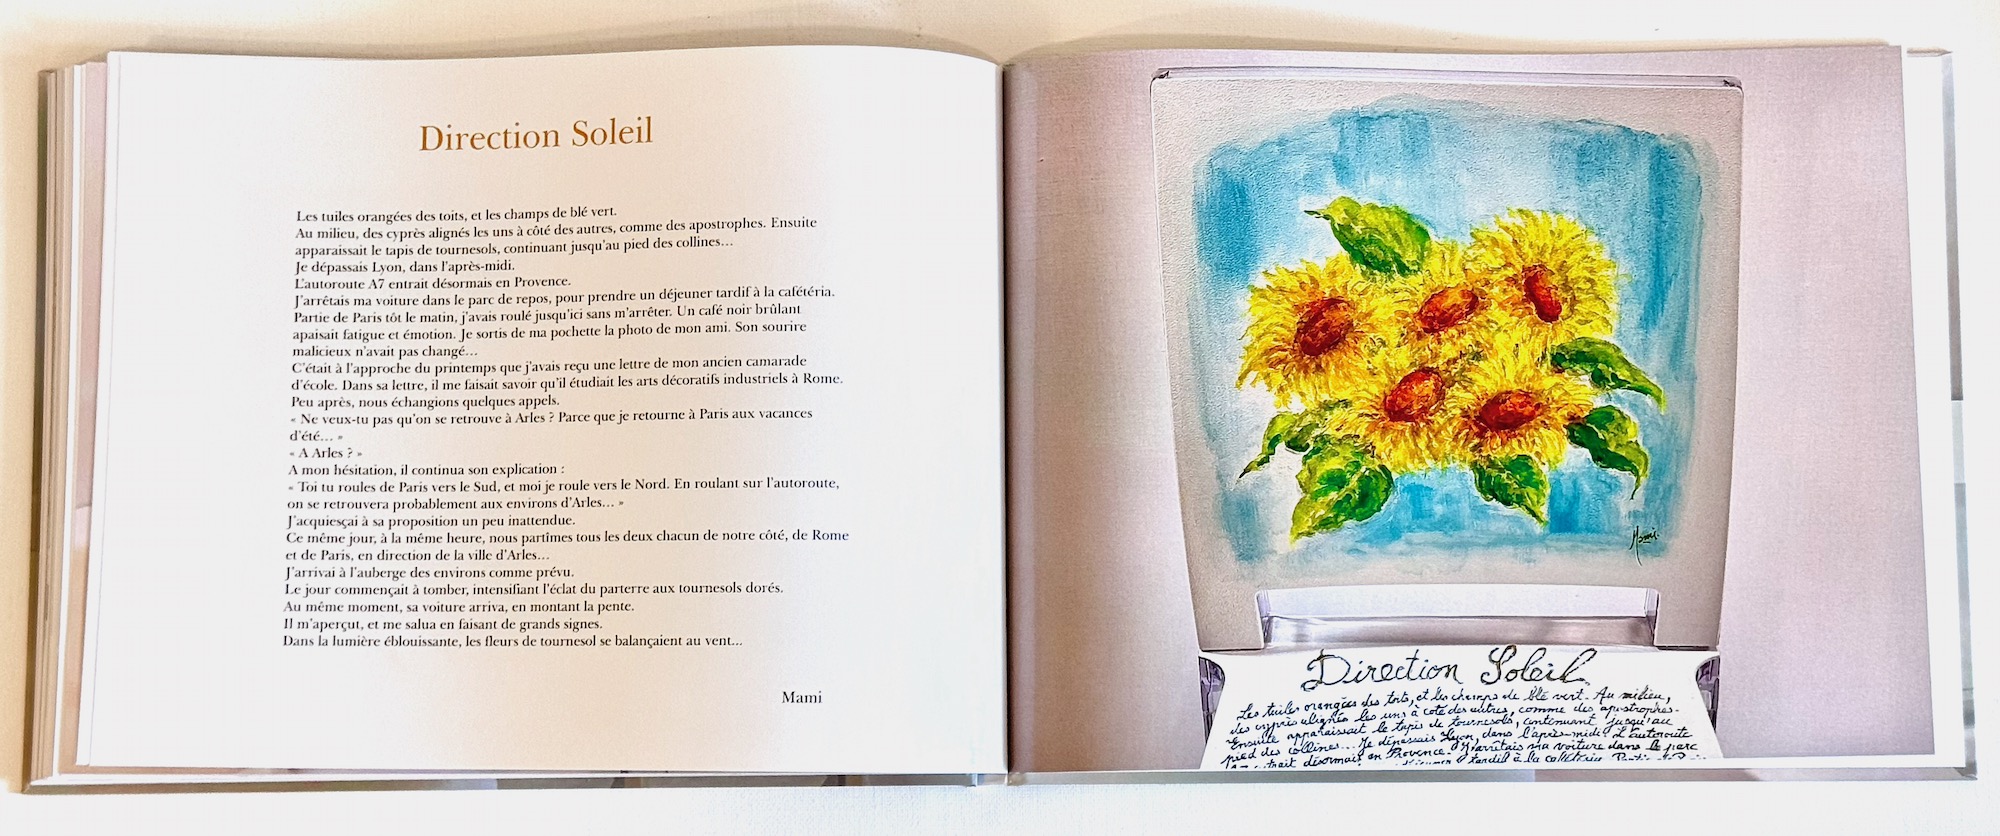 Direction Soleil
Les tuiles orangées des toits, et les champs de blé vert.
Au milieu, des cyprès alignés les uns à côté des autres, comme des apostrophes. Ensuite
apparaissait le tapis de tournesols, continuant jusqu'au pied des collines…
Je dépassais Lyon, dans l'après-midi.
L'autoroute A7 entrait désormais en Provence.
J'arrêtais ma voiture dans le parc de repos, pour prendre un déjeuner tardif à la cafétéria.
Partie de Paris tôt le matin, j'avais roulé jusqu'ici sans m'arrêter. Un café noir brûlant
apaisait fatigue et émotion. Je sortis de ma pochette la photo de mon ami. Son sourire
malicieux n'avait pas changé…
C'était à l'approche du printemps que j'avais reçu une lettre de mon ancien camarade
d'école. Dans sa lettre, il me faisait savoir qu'il étudiait les arts décoratifs industriels à Rome.
Peu après, nous échangions quelques appels.
« Ne veux-tu pas qu'on se retrouve à Arles ? Parce que je retourne à Paris aux vacances
d'été… »
« A Arles ? »
A mon hésitation, il continua son explication :
« Toi tu roules de Paris vers le Sud, et moi je roule vers le Nord. En roulant sur l'autoroute,
on se retrouvera probablement aux environs d'Arles… »
J'acquiesçai à sa proposition un peu inattendue.
Ce même jour, à la même heure, nous partîmes tous les deux chacun de notre côté, de Rome
et de Paris, en direction de la ville d'Arles…
J'arrivai à l'auberge des environs comme prévu.
Le jour commençait à tomber, intensifiant l'éclat du parterre aux tournesols dorés.
Au même moment, sa voiture arriva, en montant la pente.
Il m'aperçut, et me salua en faisant de grands signes.
Dans la lumière éblouissante, les fleurs de tournesol se balançaient au vent…
Mami
Mami
Direction Soleil
Les tuiles orangées des toits, et les champs de blé vert. Au milieu,
des cyprès alignés les uns à côté des autres, comme des apostrophes.
Ensuite apparaissait le tapis de tournesols, continuant jusqu'au
pied des collines... Je dépassais Lyon, dans l'après-midi. L'autoroute
A7 entrait désormais en Provence. J'arrêtais ma voiture dans le parc
tardif à la cafétéria